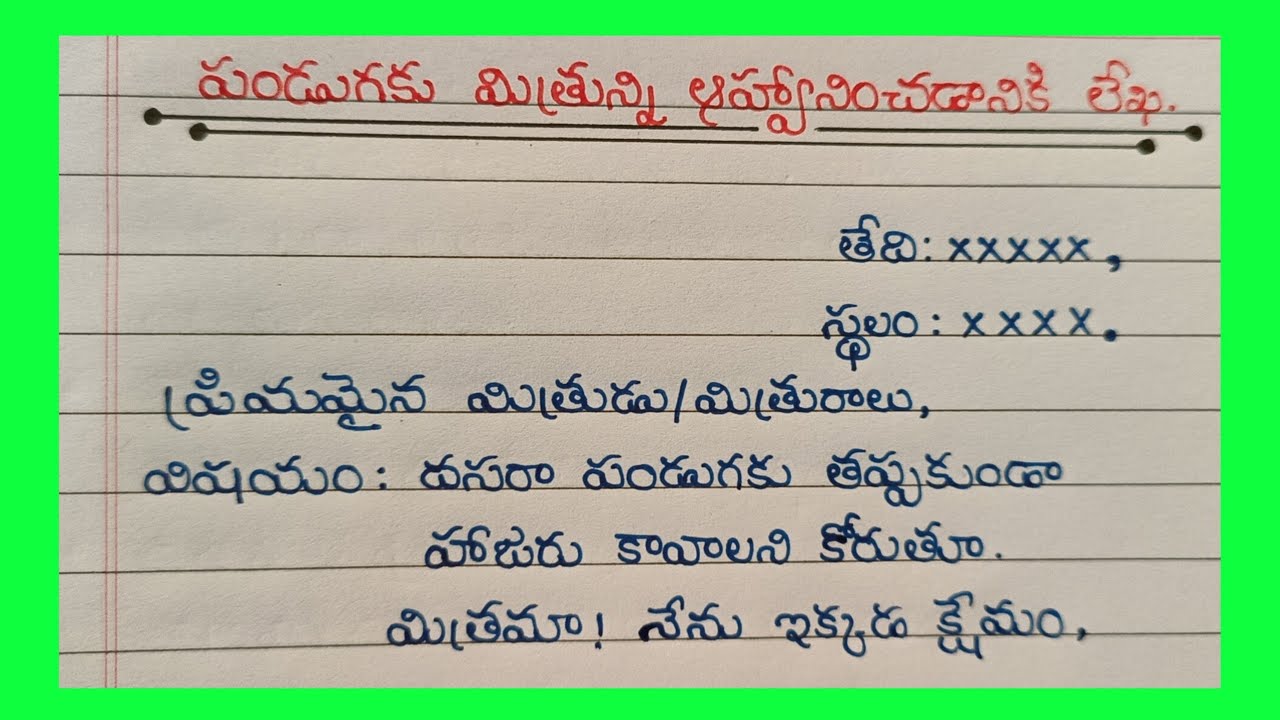 పండుగకు మిత్రున్ని ఆహ్వానించడానికి లేఖ.
తేది: xxxxx,
స్థలం: xxxx.
ప్రియమైన మిత్రుడు/మిత్రురాలు,
విషయం: దసరా పండుగకు తప్పకుండా
హాజరు కావాలని కోరుతూ.
మిత్రమా! నేను ఇక్కడ క్షేమం,